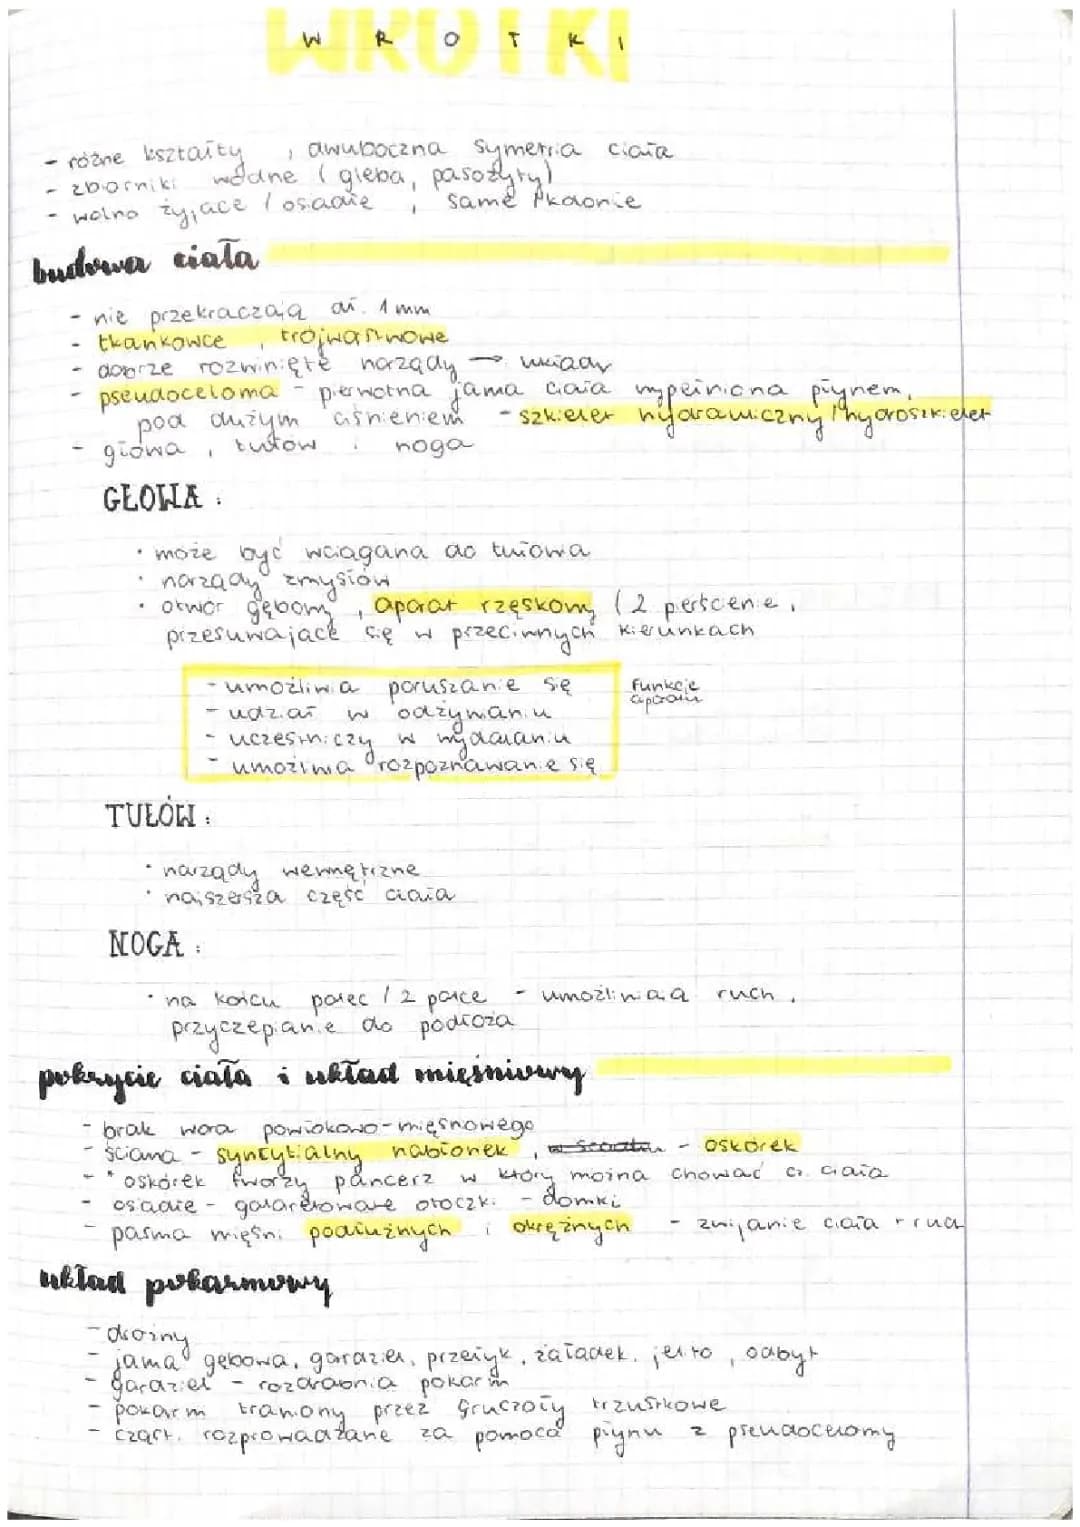 WROTKI
W R O T K I
- różne kształty, dwuboczna symetria ciała
- zbiorniki wodne (gleba, pasożyty)
- wolno żyjące / osiadłe,
budowa ciała
- nie przekraczają dł. 1 mm
- tkankowce, trójwarstwowe
- dobrze rozwinięte narządy → układy
- pseudoceloma - pierwotna jama ciała wypełniona płynem,
pod dużym ciśnieniem - szkielet hydrauliczny / hydroszkielet
- głowa, tułów i noga
GŁOWA:
• może być wciągana do tułowia
• narządy zmysłów
• otwór gębowy, aparat rzęskowy (2 pierścienie,
przesuwające się w przeciwnych kierunkach
- umożliwia poruszanie się
funkcje
aparatu
- udział w odżywianiu
- uczestniczy w wydalaniu
- umożliwia rozpoznawanie się
TUŁÓW:
• narządy wewnętrzne
• najszersza część ciała
NOGA:
• na końcu palec / 2 palce - umożliwiają ruch,
przyczepianie do podłoża
pokrycie ciała i układ mięśniowy
- brak wora powłokowo-mięsnowego
- ściana - syncytialny nabłonek, - oskórek
- * oskórek tworzy pancerz w który można chować cz. ciała
- osiadłe - galaretowate otoczki - domki
- pasma mięśni podłużnych i okrężnych - zwijanie ciała + ruch
układ pokarmowy
- drożny
- jama gębowa, gardziel, przełyk, żołądek, jelito, odbyt
- gardziel - rozdrabnia pokarm
- pokarm trawiony przez gruczoły trzustkowe
- cząst. rozprowadzane za pomocą płynu z pseudocelomy